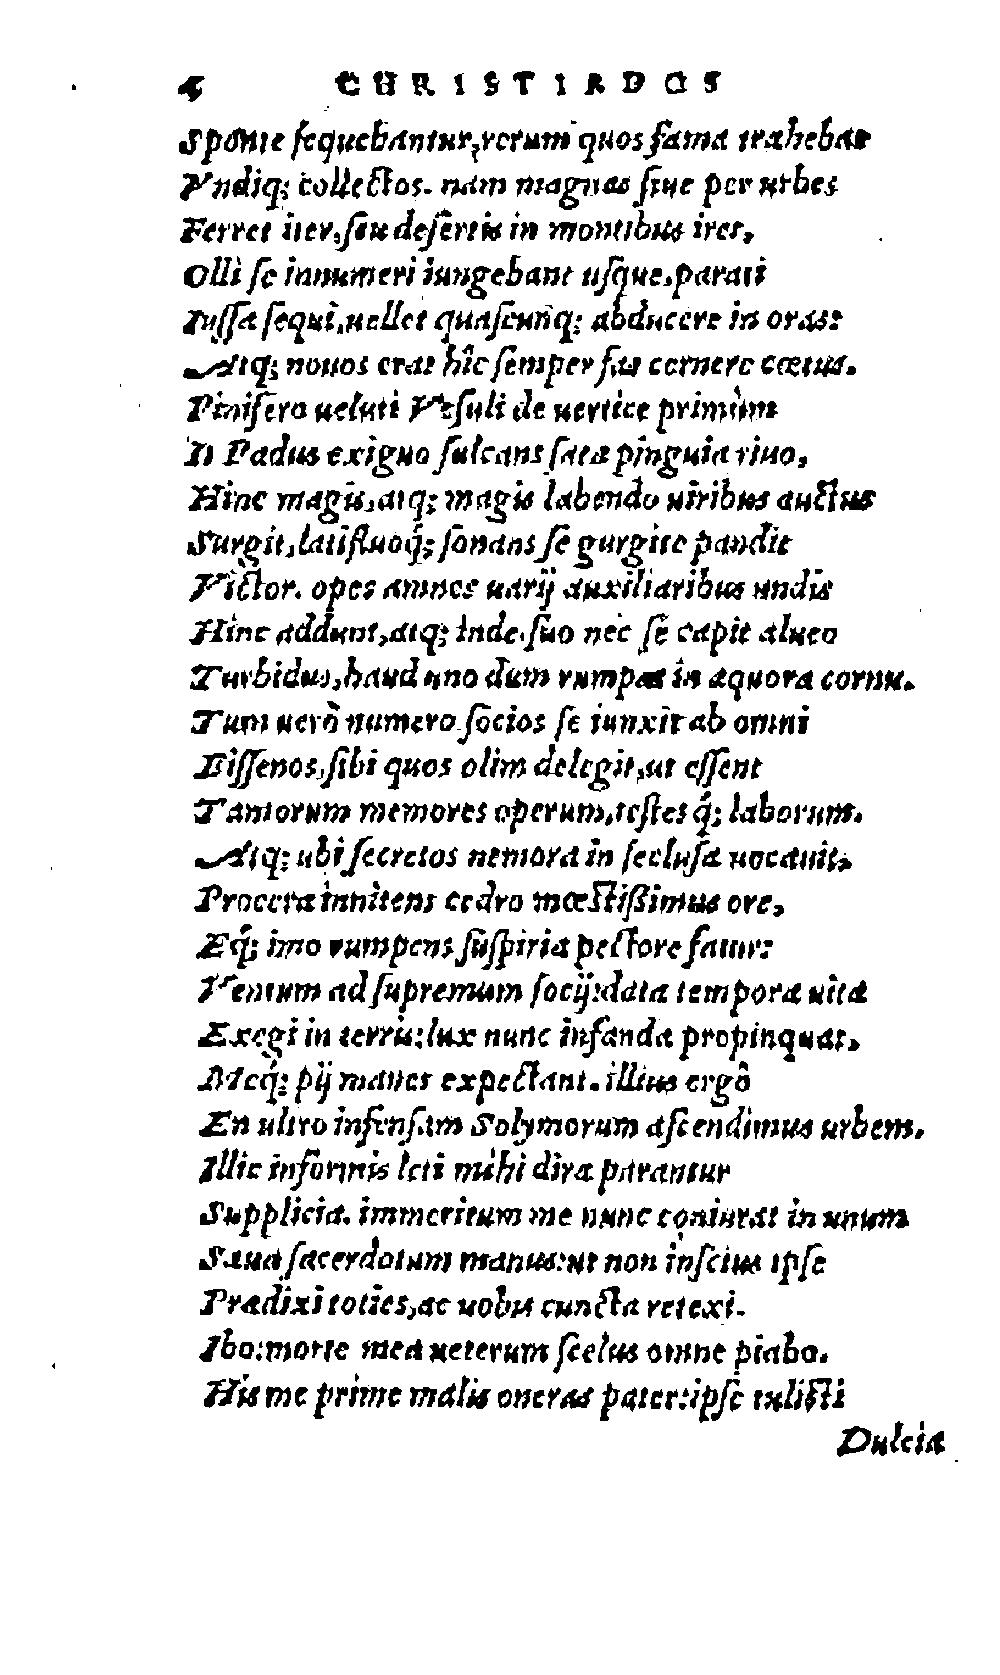 4 CHRISTIADOS
Sponte sequebantur, verum quos fama trahebat
Vndiq; collectos. nam magnas siue per urbes
Ferret iter, seu desertis in montibus iret,
Olli se innumeri iungebant usque, parati
Iussa sequi, uellet quascunq; abducere in oras:
Atq; nouos erat hîc semper fas cernere cœtus.
Pinifero ueluti Vesuli de uertice primùm
It Padus exiguo sulcans sata pinguia riuo,
Hinc magis, atq; magis labendo uiribus auctus
Surgit, latifluoq́; sonans se gurgite pandit
Victor. opes amnes uarij auxiliaribus undis
Hinc addunt, atq; inde. suo nec se capit alueo
Turbidus, haud uno dum rumpat in æquora cornu.
Tum uerò numero socios se iunxit ab omni
Bissenos, sibi quos olim delegit, ut essent
Tantorum memores operum, testes q́; laborum.
Atq; ubi secretos nemora in seclusa uocauit,
Procera innitens cedro mœstißimus ore,
Eq́; imo rumpens suspiria pectore fatur:
Ventum ad supremum socij: data tempora uitæ
Exegi in terris: lux nunc infanda propinquat,
Mcq́; pij manes expectant. illius ergô
En ultro infensam Solymorum ascendimus urbem.
Illic informis leti mihi dira parantur
Supplicia. immeritum me nunc coniurat in unum
Sæua sacerdotum manus: ut non inscius ipse
Prædixi toties, ac uobis cuncta retexi.
Ibo: morte mea ueterum scelus omne piabo.
His me prime malis oneras pater: ipse tulisti
Dulcia